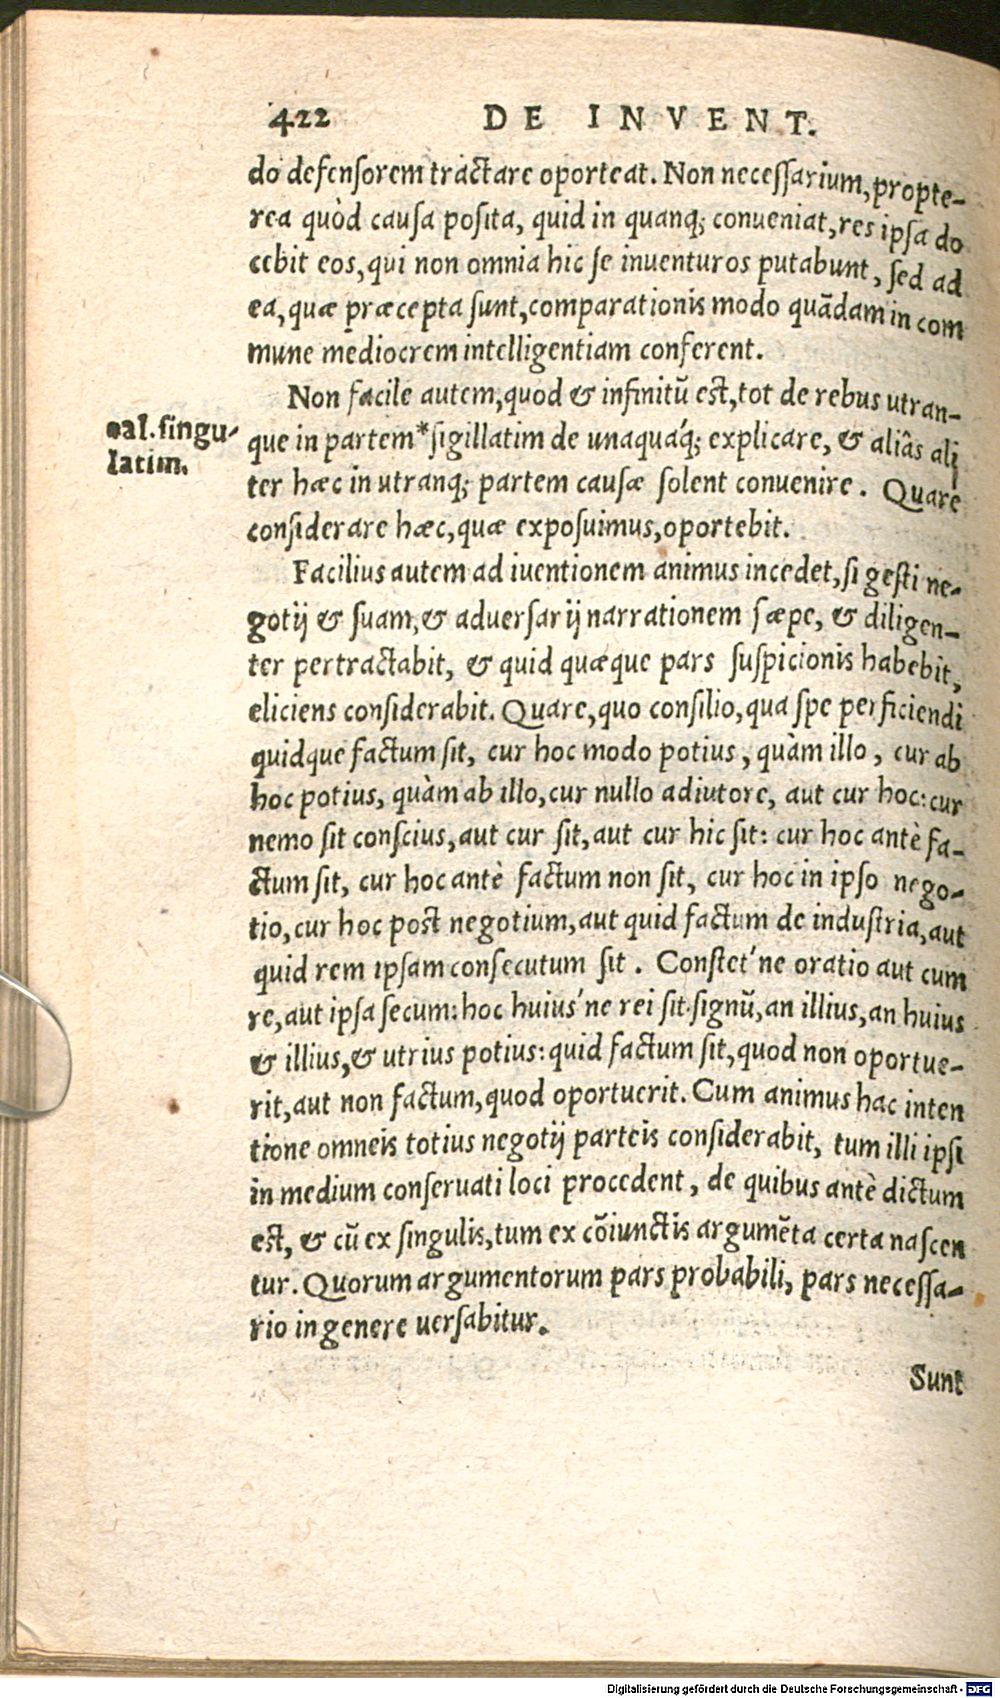 422 DE INVENT.
do defensorem tractare oporteat. Non necessarium, propte-
rea quòd causa posita, quid in quanq; conueniat, res ipsa do
cebit eos, qui non omnia hic se inuenturos putabunt, sed ad
ea, quæ præcepta sunt, comparationis modo quādam in com
mune mediocrem intelligentiam conferent.
Non facile autem, quod & infinitū est, tot de rebus utran-
●al. singu-
latim.
que in partem*sigillatim de unaquáq; explicare, & aliâs ali
ter hæc in utranq; partem causæ solent conuenire. Quare
considerare hæc, quæ exposuimus, oportebit.
Facilius autem ad iuentionem animus incedet, si gesti ne-
gotij & suam, & aduersarij narrationem sæpe, & diligen-
ter pertractabit, & quid quæque pars suspicionis habebit,
eliciens considerabit. Quare, quo consilio, qua spe perficiendi
quidque factum sit, cur hoc modo potius, quàm illo, cur ab
hoc potius, quàm ab illo, cur nullo adiutore, aut cur hoc: cur
nemo sit conscius, aut cur sit, aut cur hic sit: cur hoc antè fa-
ctum sit, cur hoc antè factum non sit, cur hoc in ipso nego-
tio, cur hoc post negotium, aut quid factum de industria, aut
quid rem ipsam consecutum sit. Constet'ne oratio aut cum
re, aut ipsa secum: hoc huius'ne rei sit signū, an illius, an huius
& illius, & utrius potius: quid factum sit, quod non oportue-
rit, aut non factum, quod oportuerit. Cum animus hac inten
tione omneis totius negotij parteis considerabit, tum illi ipsi
in medium conseruati loci procedent, de quibus antè dictum
est, & cū ex singulis, tum ex cōiunctis argumēta certa nascen
tur. Quorum argumentorum pars probabili, pars necessa-
rio in genere uersabitur.
Sunt
Digitalisierung gefördert durch die Deutsche Forschungsgemeinschaft - DFG